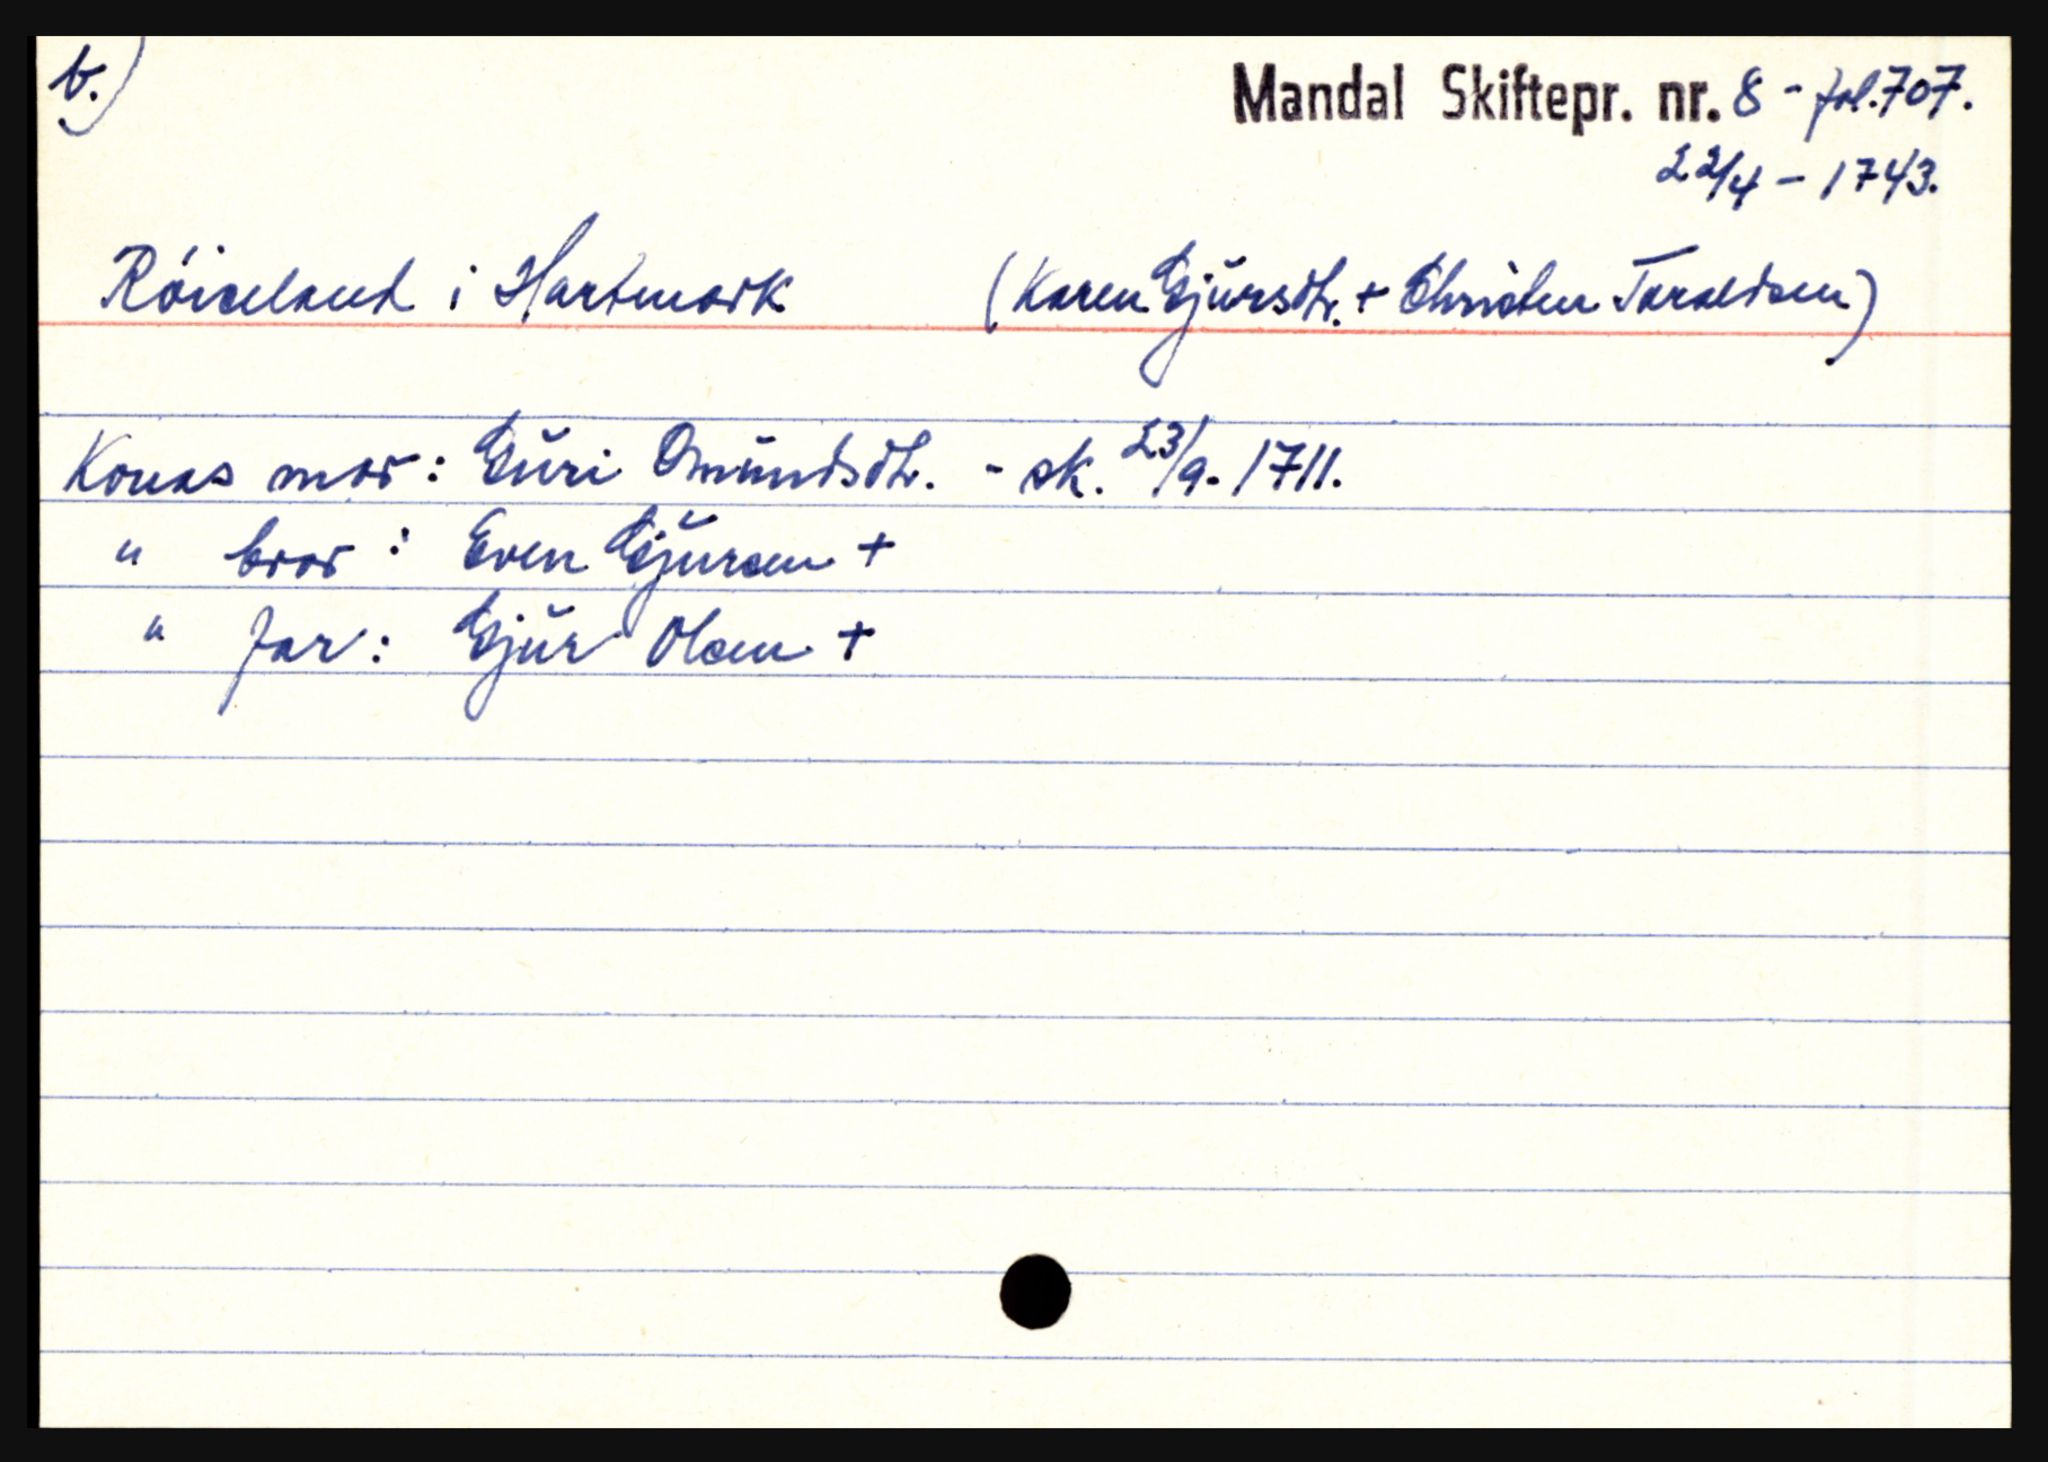 b.)
Mandal Skiftepr. nr. 8 - fol. 707.
22/4 - 1743.
Røiseland i Hartmark (Karen Gjursdtr. + Christen Taraldsen)
Konas mor: Guri Omundsdtr. - sk. 23/9. 1711.
" bror: Even Gjursen +
" far: Gjur Olsen +